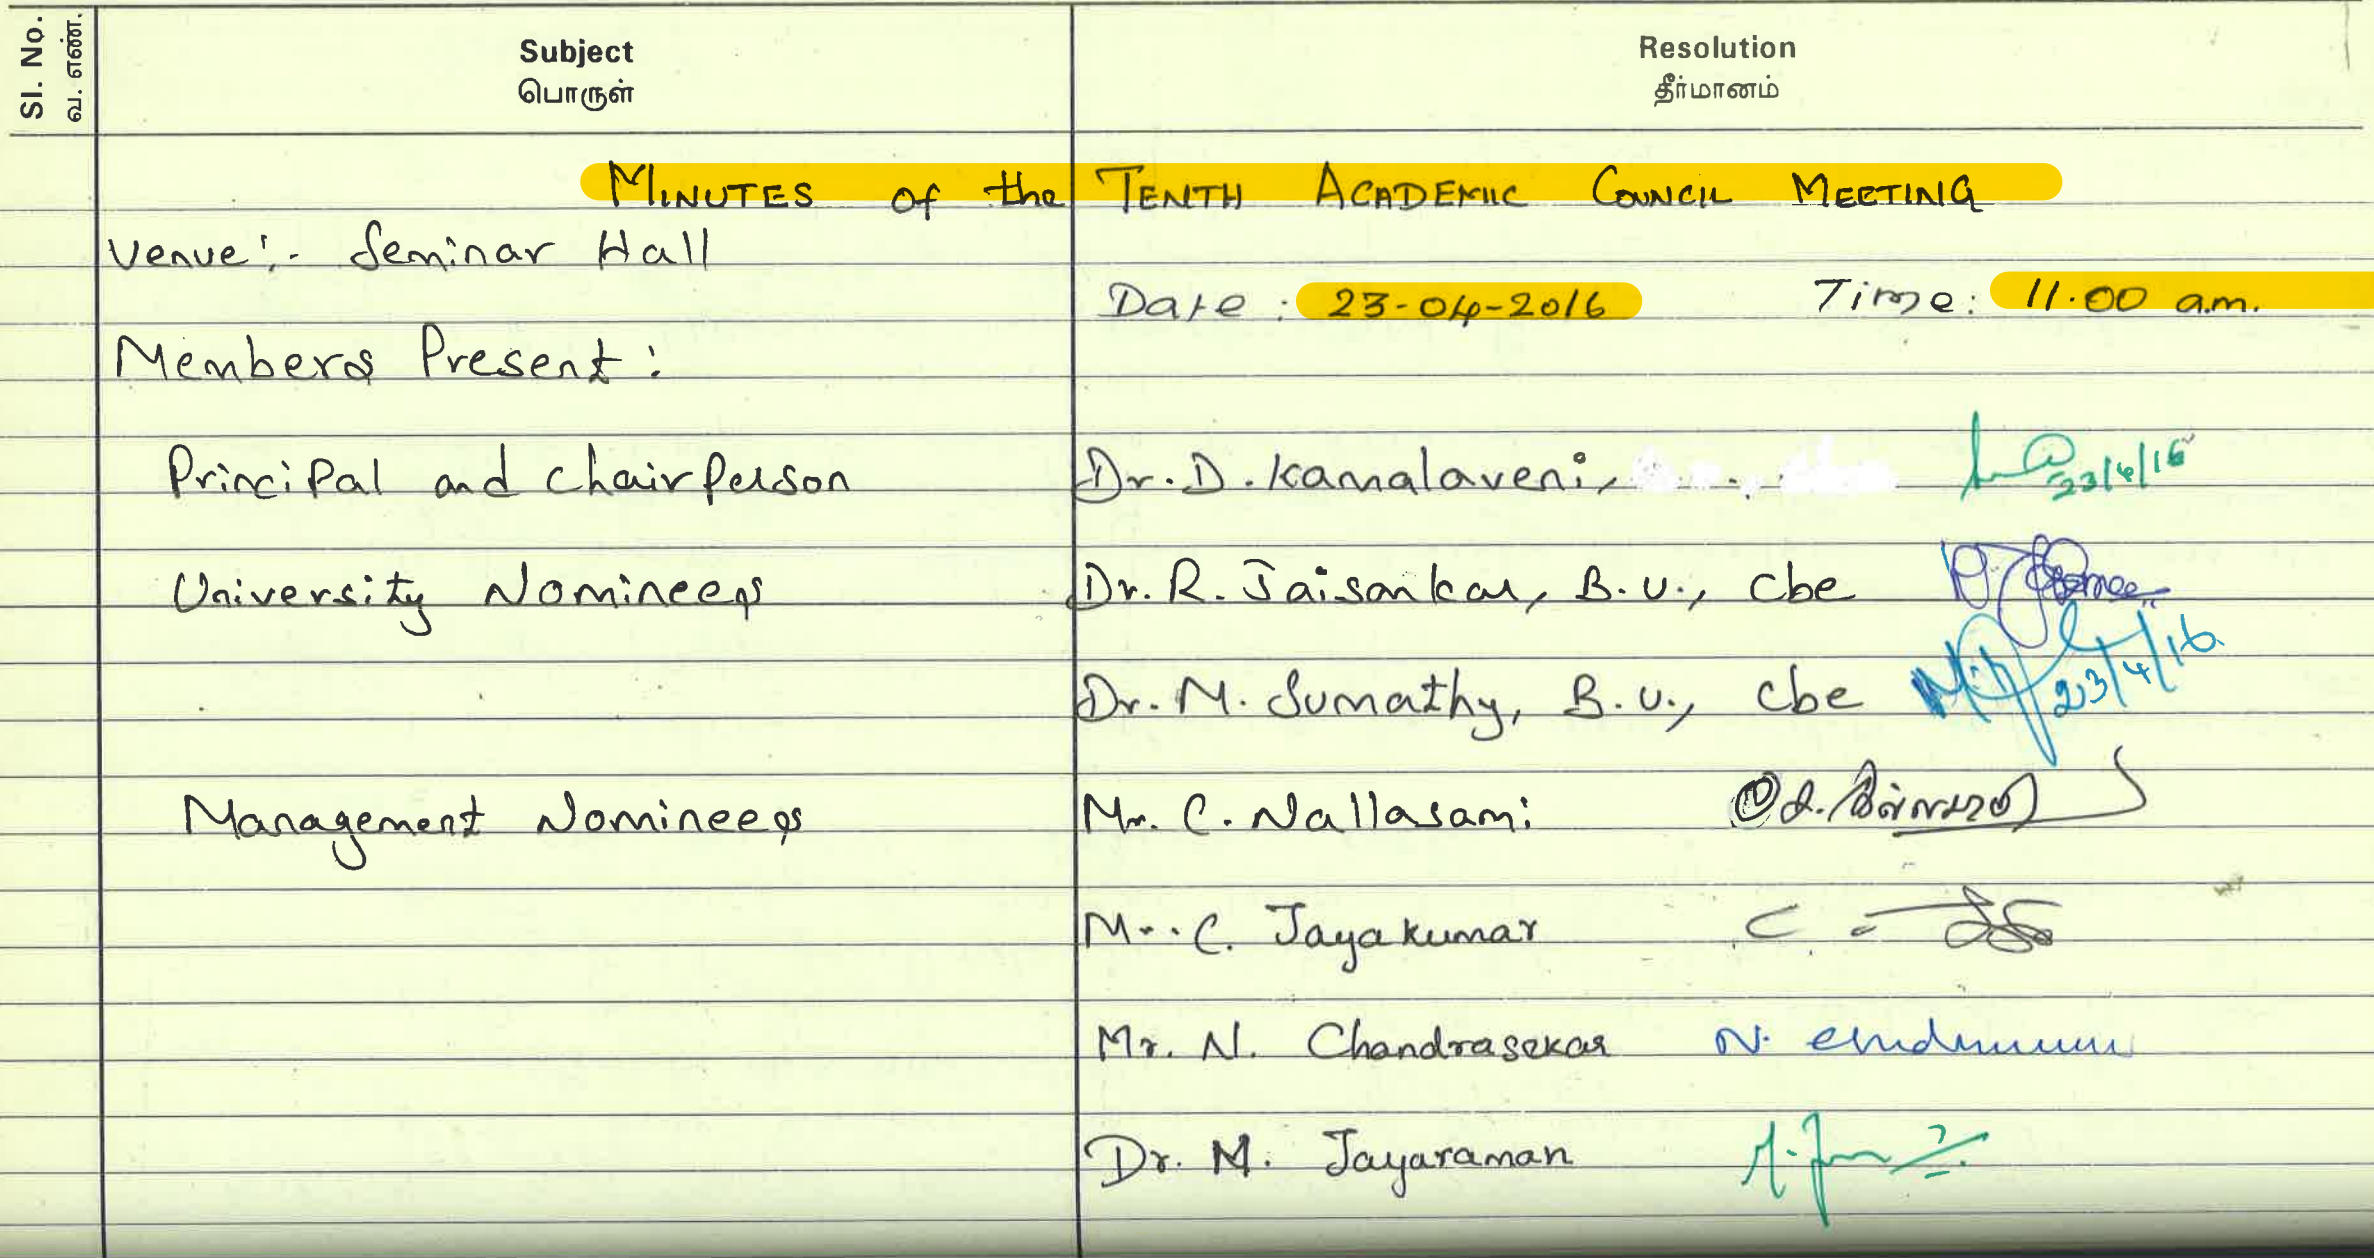 Sl. No.
வ. எண்.
Subject
பொருள்
Resolution
தீர்மானம்
MINUTES of the TENTH ACADEMIC COUNCIL MEETING
Venue:- Seminar Hall
Date : 23-04-2016 Time: 11.00 a.m.
Members Present :
Principal and Chairperson Dr. D. Kamalaveni, 23/4/16
University Nominees Dr. R. Jaisankar, B.U., Cbe
Dr. M. Sumathy, B.U., Cbe 23/4/16
Management Nominees Mr. C. Nallasami
Mr. C. Jayakumar
Mr. N. Chandrasekar
Dr. M. Jayaraman